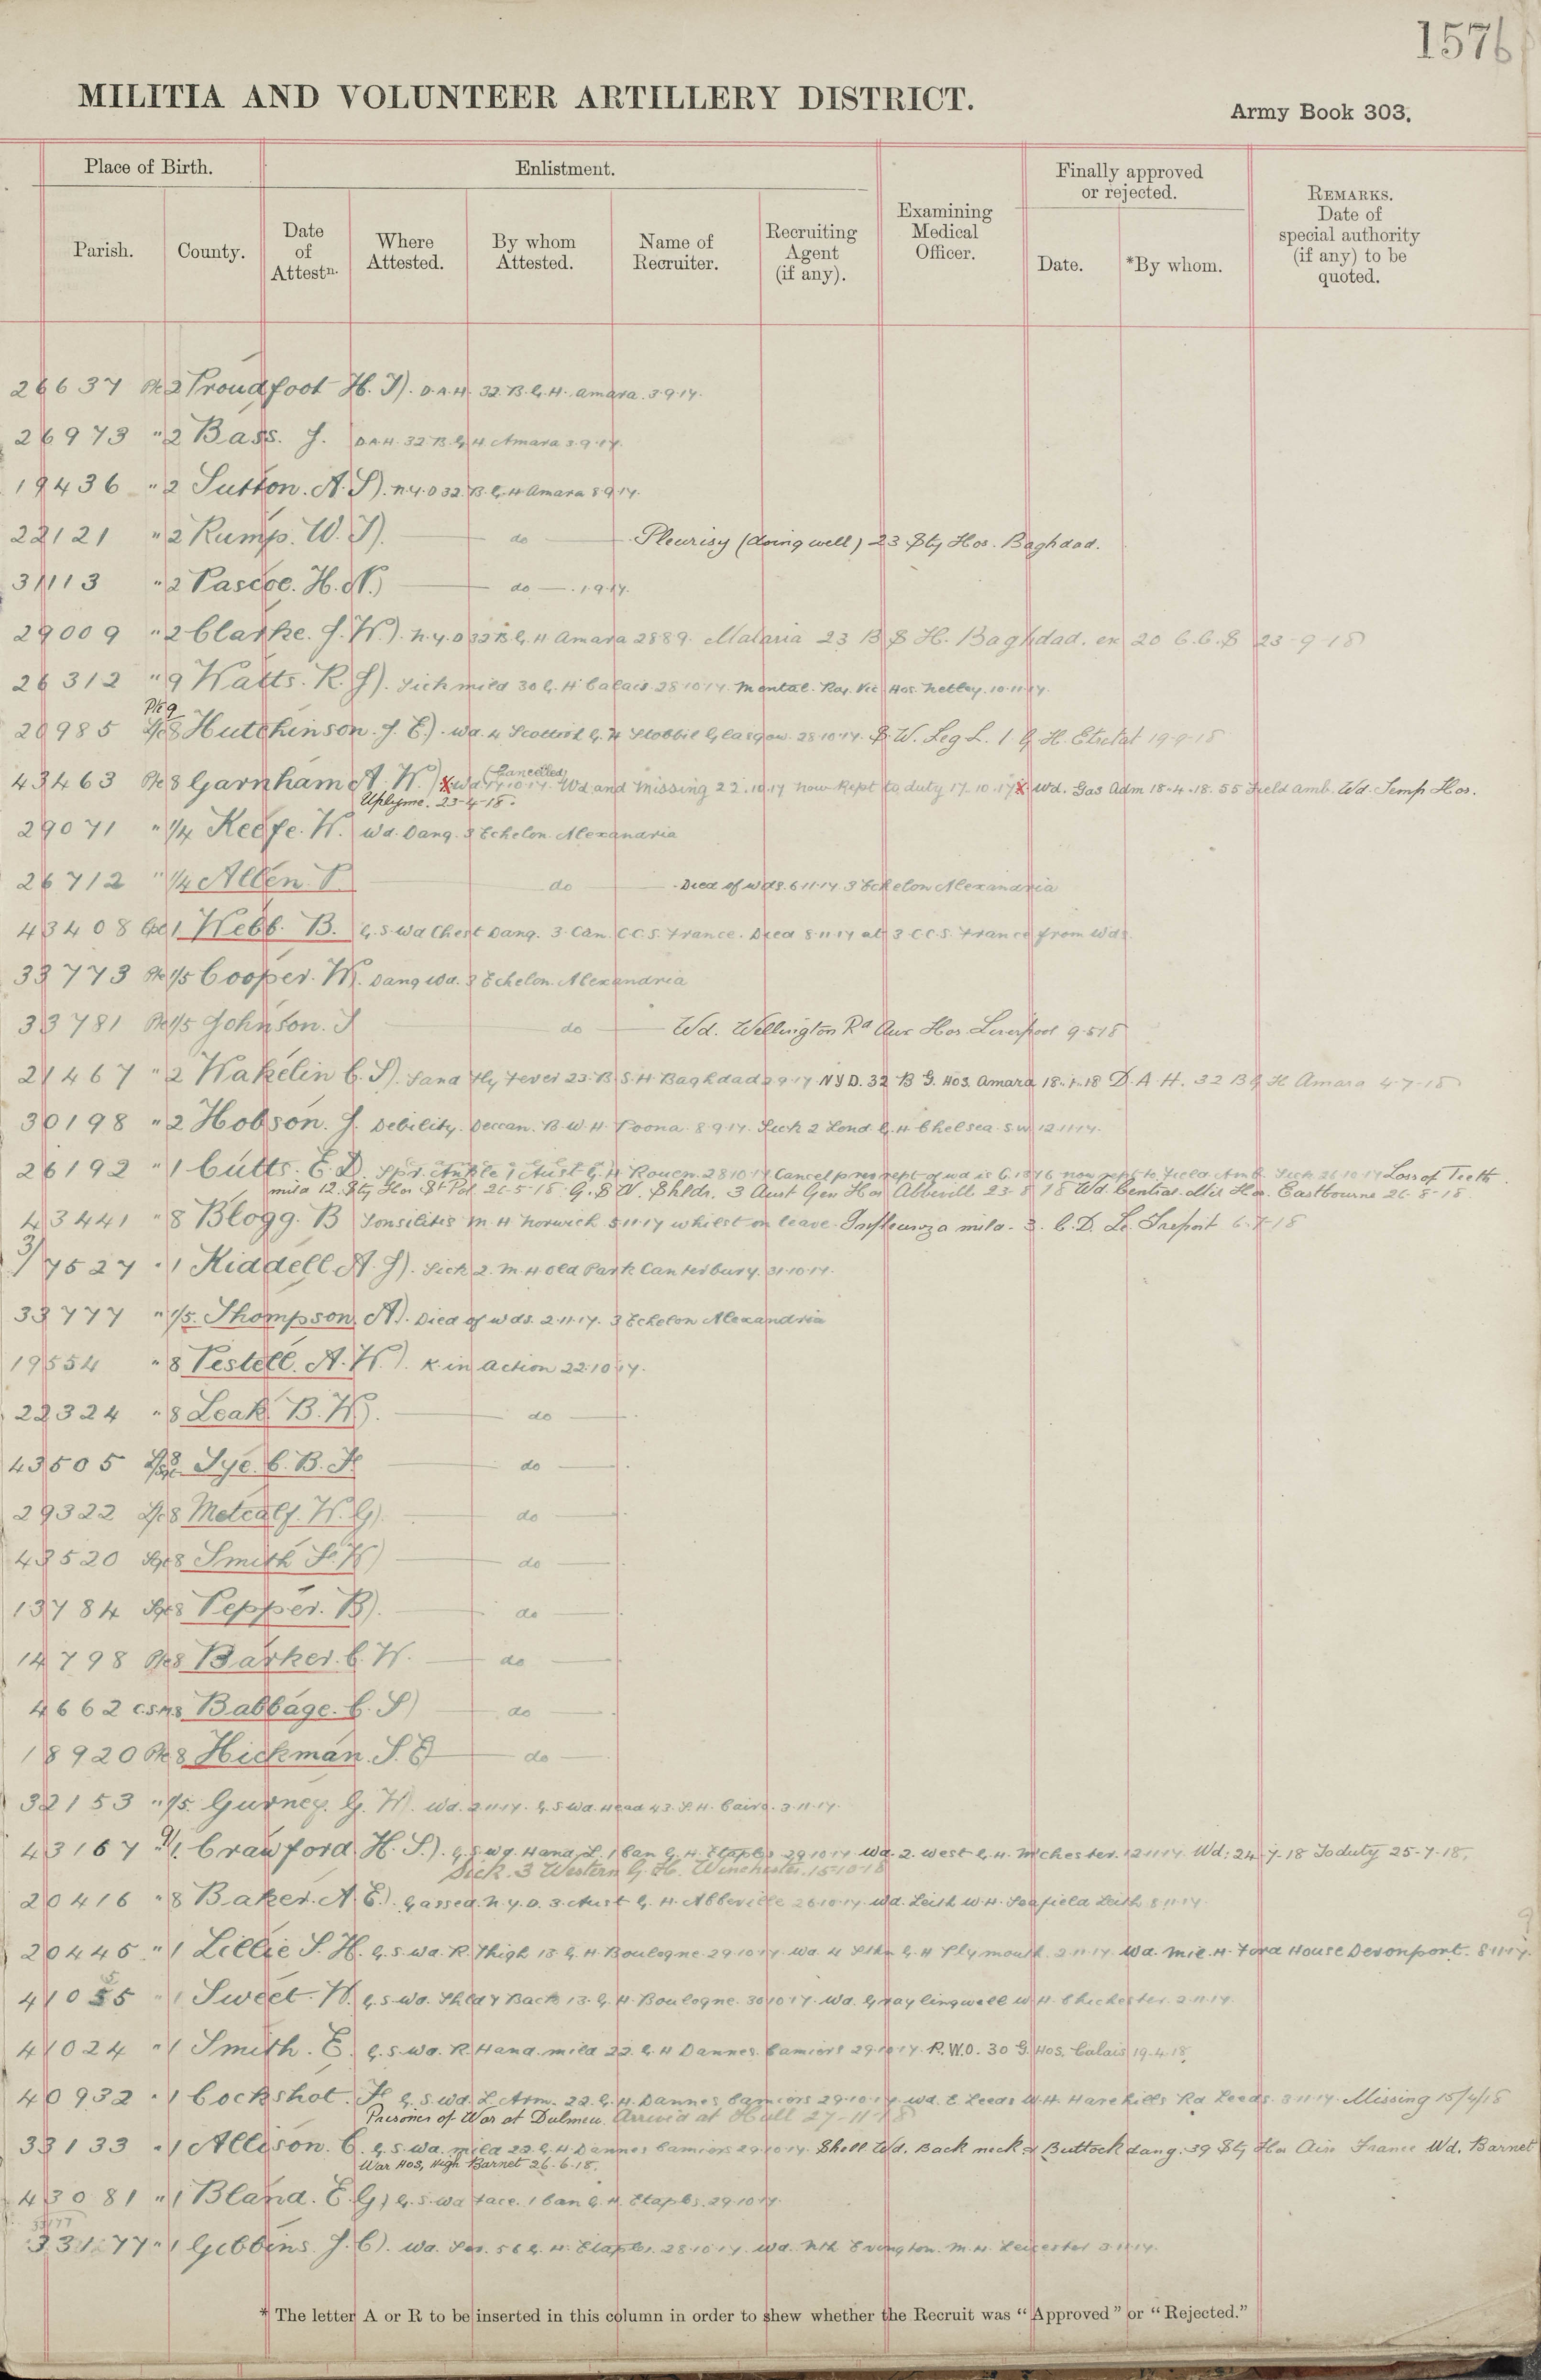 1576
MILITIA AND VOLUNTEER ARTILLERY DISTRICT.
Army Book 303.
Place of Birth.
Enlistment.
Finally approved or rejected.
Parish.
County.
Date of Attestn.
Where Attested.
By whom Attested.
Name of Recruiter.
Recruiting Agent (if any).
Examining Medical Officer.
Date.
*By whom.
REMARKS. Date of special authority (if any) to be quoted.
26637 Pte 2 Proudfoot H. J). D.A.H. 32. B.G.H. Amara. 3.9.17.
26973 " 2 Bass. J. D.A.H. 32 B.G.H Amara 3.9.17.
19436 " 2 Sutton. A. S). N.Y.D 32. B.G.H Amara 8 9 17.
22121 " 2 Rump. W. J). do Pleurisy (doing well) 23 Sty Hos. Baghdad.
31113 " 2 Pascoe. H. N.) do 1.9.17.
29009 " 2 Clarke. J. W.). N.Y.D 32 B.G.H Amara 28 8 9. Malaria 23 B S H. Baghdad. ex 20 C.C.S 23-9-18
26312 " 9 Watts. R. J). Sick mild 30 G.H Calais 28 10 17. Mental. Roy. Vic Hos. Netley. 10.11.17.
Pte 9
20985 L/C 8 Hutchinson. J. E). Wd. 4 Scottish G.H Stobhill Glasgow. 28.10.17. S. W. Leg L. 1 G. H. Etretat 19-9-18
43463 Pte 8 Garnham A. W.) X Wd 17.10.17. (Cancelled) Wd and Missing 22.10.17 now Rept to duty 17.10.17 X Wd. Gas Adm 18-4-18. 55 Field Amb. Wd. Temp Hos.
Uplyme. 23-4-18.
29071 " 1/4 Keefe. W. Wd. Dang. 3 Echelon. Alexandria
26712 " 1/4 Allen. P. do Died of wds. 6 11.17. 3 Echelon Alexandria
43408 Cpl 1 Webb. B. G.S.Wd Chest Dang. 3. Can. C.C.S. France. Died 8.11.17 at 3 C.C.S. France from Wds
33773 Pte 1/5 Cooper. W. Dang Wd. 3 Echelon. Alexandria
33781 Pte 1/5 Johnson. J do Wd. Wellington Rd Aux Hos. Liverpool 9.5.18
21467 " 2 Wakelin C. S). Sand Fly Fever 23. B.S.H Baghdad 2 9.17 NYD. 32 B G. Hos. Amara 18.1.18 D. A. H. 32 B G H Amara 4-7-18
30198 " 2 Hobson. J. Debility. Deccan. B.W.H. Poona. 8 9 17. Sick 2 Lond G.H Chelsea. S.W 12.11.17.
26192 " 1 Cutts. E. D. Spr. Ankle 1 Aust G.H Rouen. 28 10 17 Cancel prev rept of wd Loss of Teeth.
mild 12. Sty Hos St Pol 26-5-18. G. S W. Shldr. 3 Aust Gen Hos Abbevill 23-8-18 Wd. Central Mil Hos. Eastbourne 26-8-18
43441 " 8 Blogg. B Tonsilitis M.H Norwich 5.11.17 whilst on leave. Influenza mild. 3. C. D. Le Treport 6-7-18
3/7527 " 1 Kiddell A. J). Sick 2. M.H Old Park Canterbury. 31.10.17.
33777 " 1/5. Thompson. A). Died of wds. 2.11.17. 3 Echelon Alexandria
19554 " 8 Pestell. A. W.). K. in action 22.10.17.
22324 " 8 Leak B. W). do
43505 Tye. C. B. F. do
29322 L/C 8 Metcalf. W. G). do
43520 Sgt 8 Smith F. W) do
13784 Sgt 8 Pepper. B). do
14798 Pte 8 Barker. C. W. do
4662 CSM 8 Babbage. C. S) do
18920 Pte 8 Hickman. S. E do
32153 " 1/5. Gurney. G. W. Wd. 2.11.17. G.S Wd Head 43. S.H. Cairo. 3.11.17.
43167 " 1. Crawford. H. S). G.S Wd. Hand, L. 1 Can G.H. Etaples 29.10.17 Wd. 2. West G.H. Mchester. 12.11.17. Wd: 24-7-18 To duty 25-7-18.
Sick. 3 Western G. H. Winchester. 15-10-18
20416 " 8 Baker. A. E). Gassed. N.Y.D. 3. Aust G.H. Abbeville 26.10.17. Wd. Leith W.H. Seafield Leith 8.11.17.
20445 " 1 Lillie S. H. G.S. Wd. R. Thigh 13 G.H Boulogne. 29.10.17. Wd. 4 Sthn G.H Plymouth. 2.11.17. Wd. Mil. H. Ford House Devonport. 8 11 17.
41055 " 1 Sweet. W. G.S. Wd. Shld & Back 13. G.H. Boulogne. 30 10 17. Wd. Graylingwell W.H. Chichester. 2.11.17.
41024 " 1 Smith. E. G.S. Wd. R. Hand. mild 22. G.H Dannes. Camiers 29.10.17. P.W.O. 30 G. Hos. Calais 19.4.18.
40932 " 1 Cockshot. F. G.S. Wd. L. Arm. 22. G.H. Dannes Camiers 29.10.17. Wd. E. Leeds W.H. Harehills Rd Leeds. 3.11.17. Missing 15/4/18
Prisoner of War at Dulmen. Arrived at Hull 27-11-18
33133 " 1 Allison. C. G.S. Wd. mild 22. G.H Dannes Camiers 29.10.17. Shell Wd. Back neck & Buttock dang. 39 Sty Hos Aire France Wd. Barnet
War Hos, High Barnet 26-6-18.
43081 " 1 Bland. E. G) G.S. Wd Face. 1 Can G.H. Etaples. 29.10.17.
33177
33177 " 1 Gibbins. J. C). Wd. Sev. 56 G.H. Etaples. 28.10.17. Wd. Nth Evington. M.H. Leicester 3.11.17.
* The letter A or R to be inserted in this column in order to shew whether the Recruit was "Approved" or "Rejected."